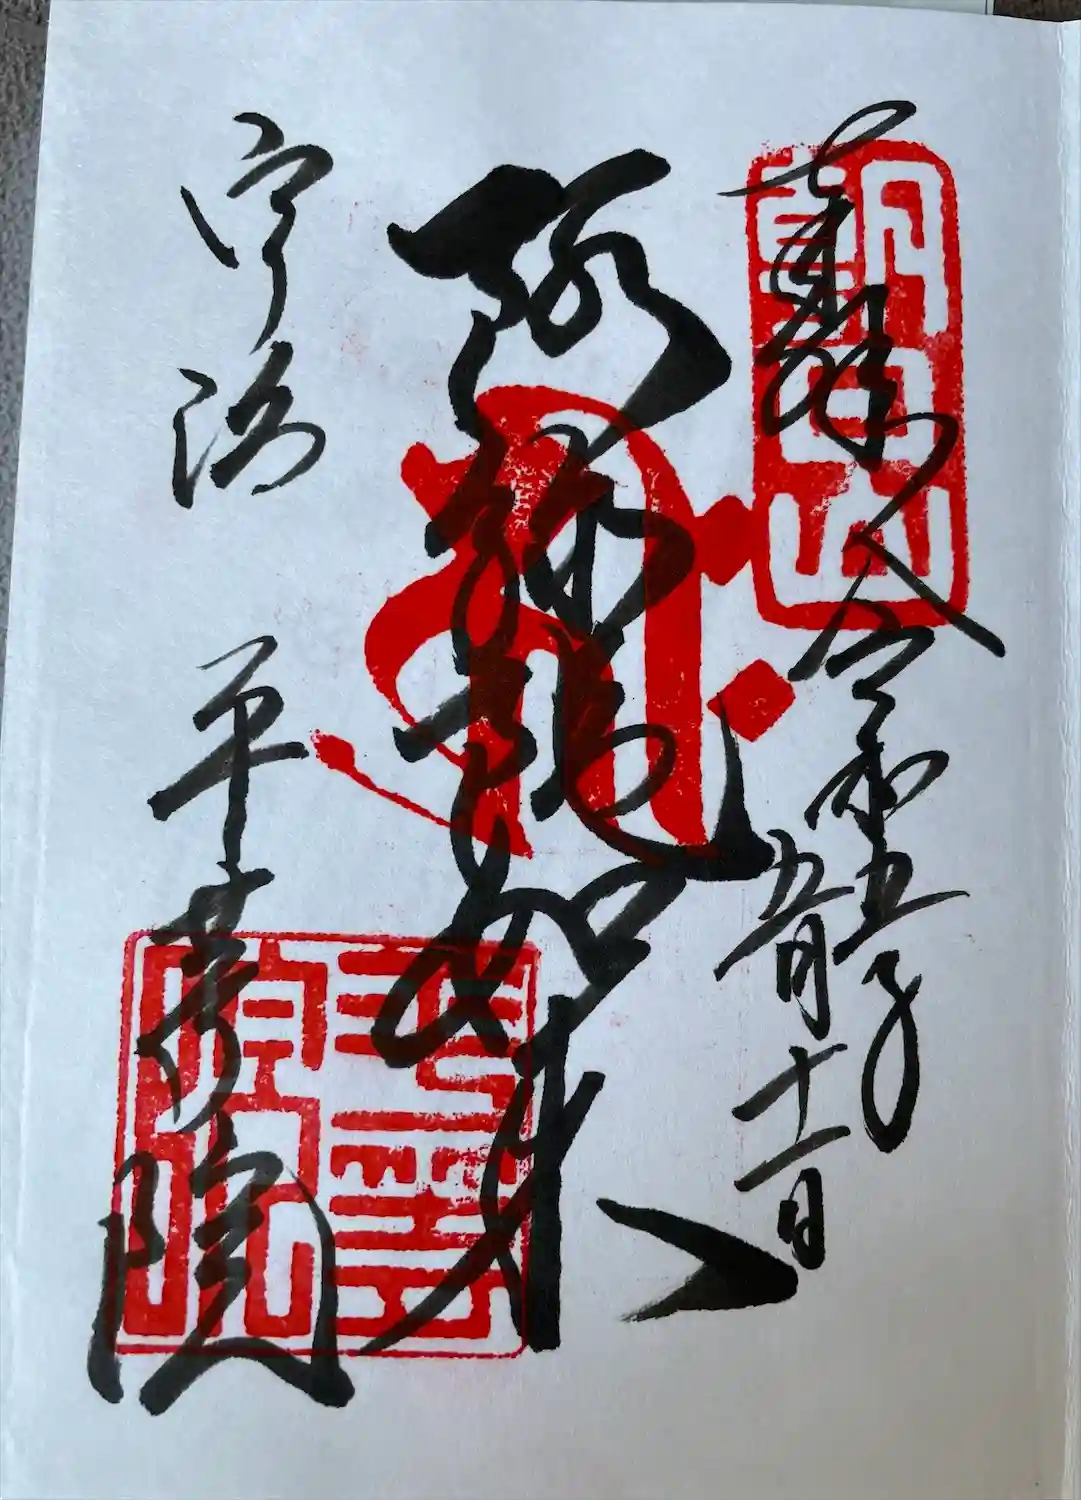 奉拝 令和五年
五月十一日
朝日山
阿弥陀如来
宇治 平等院